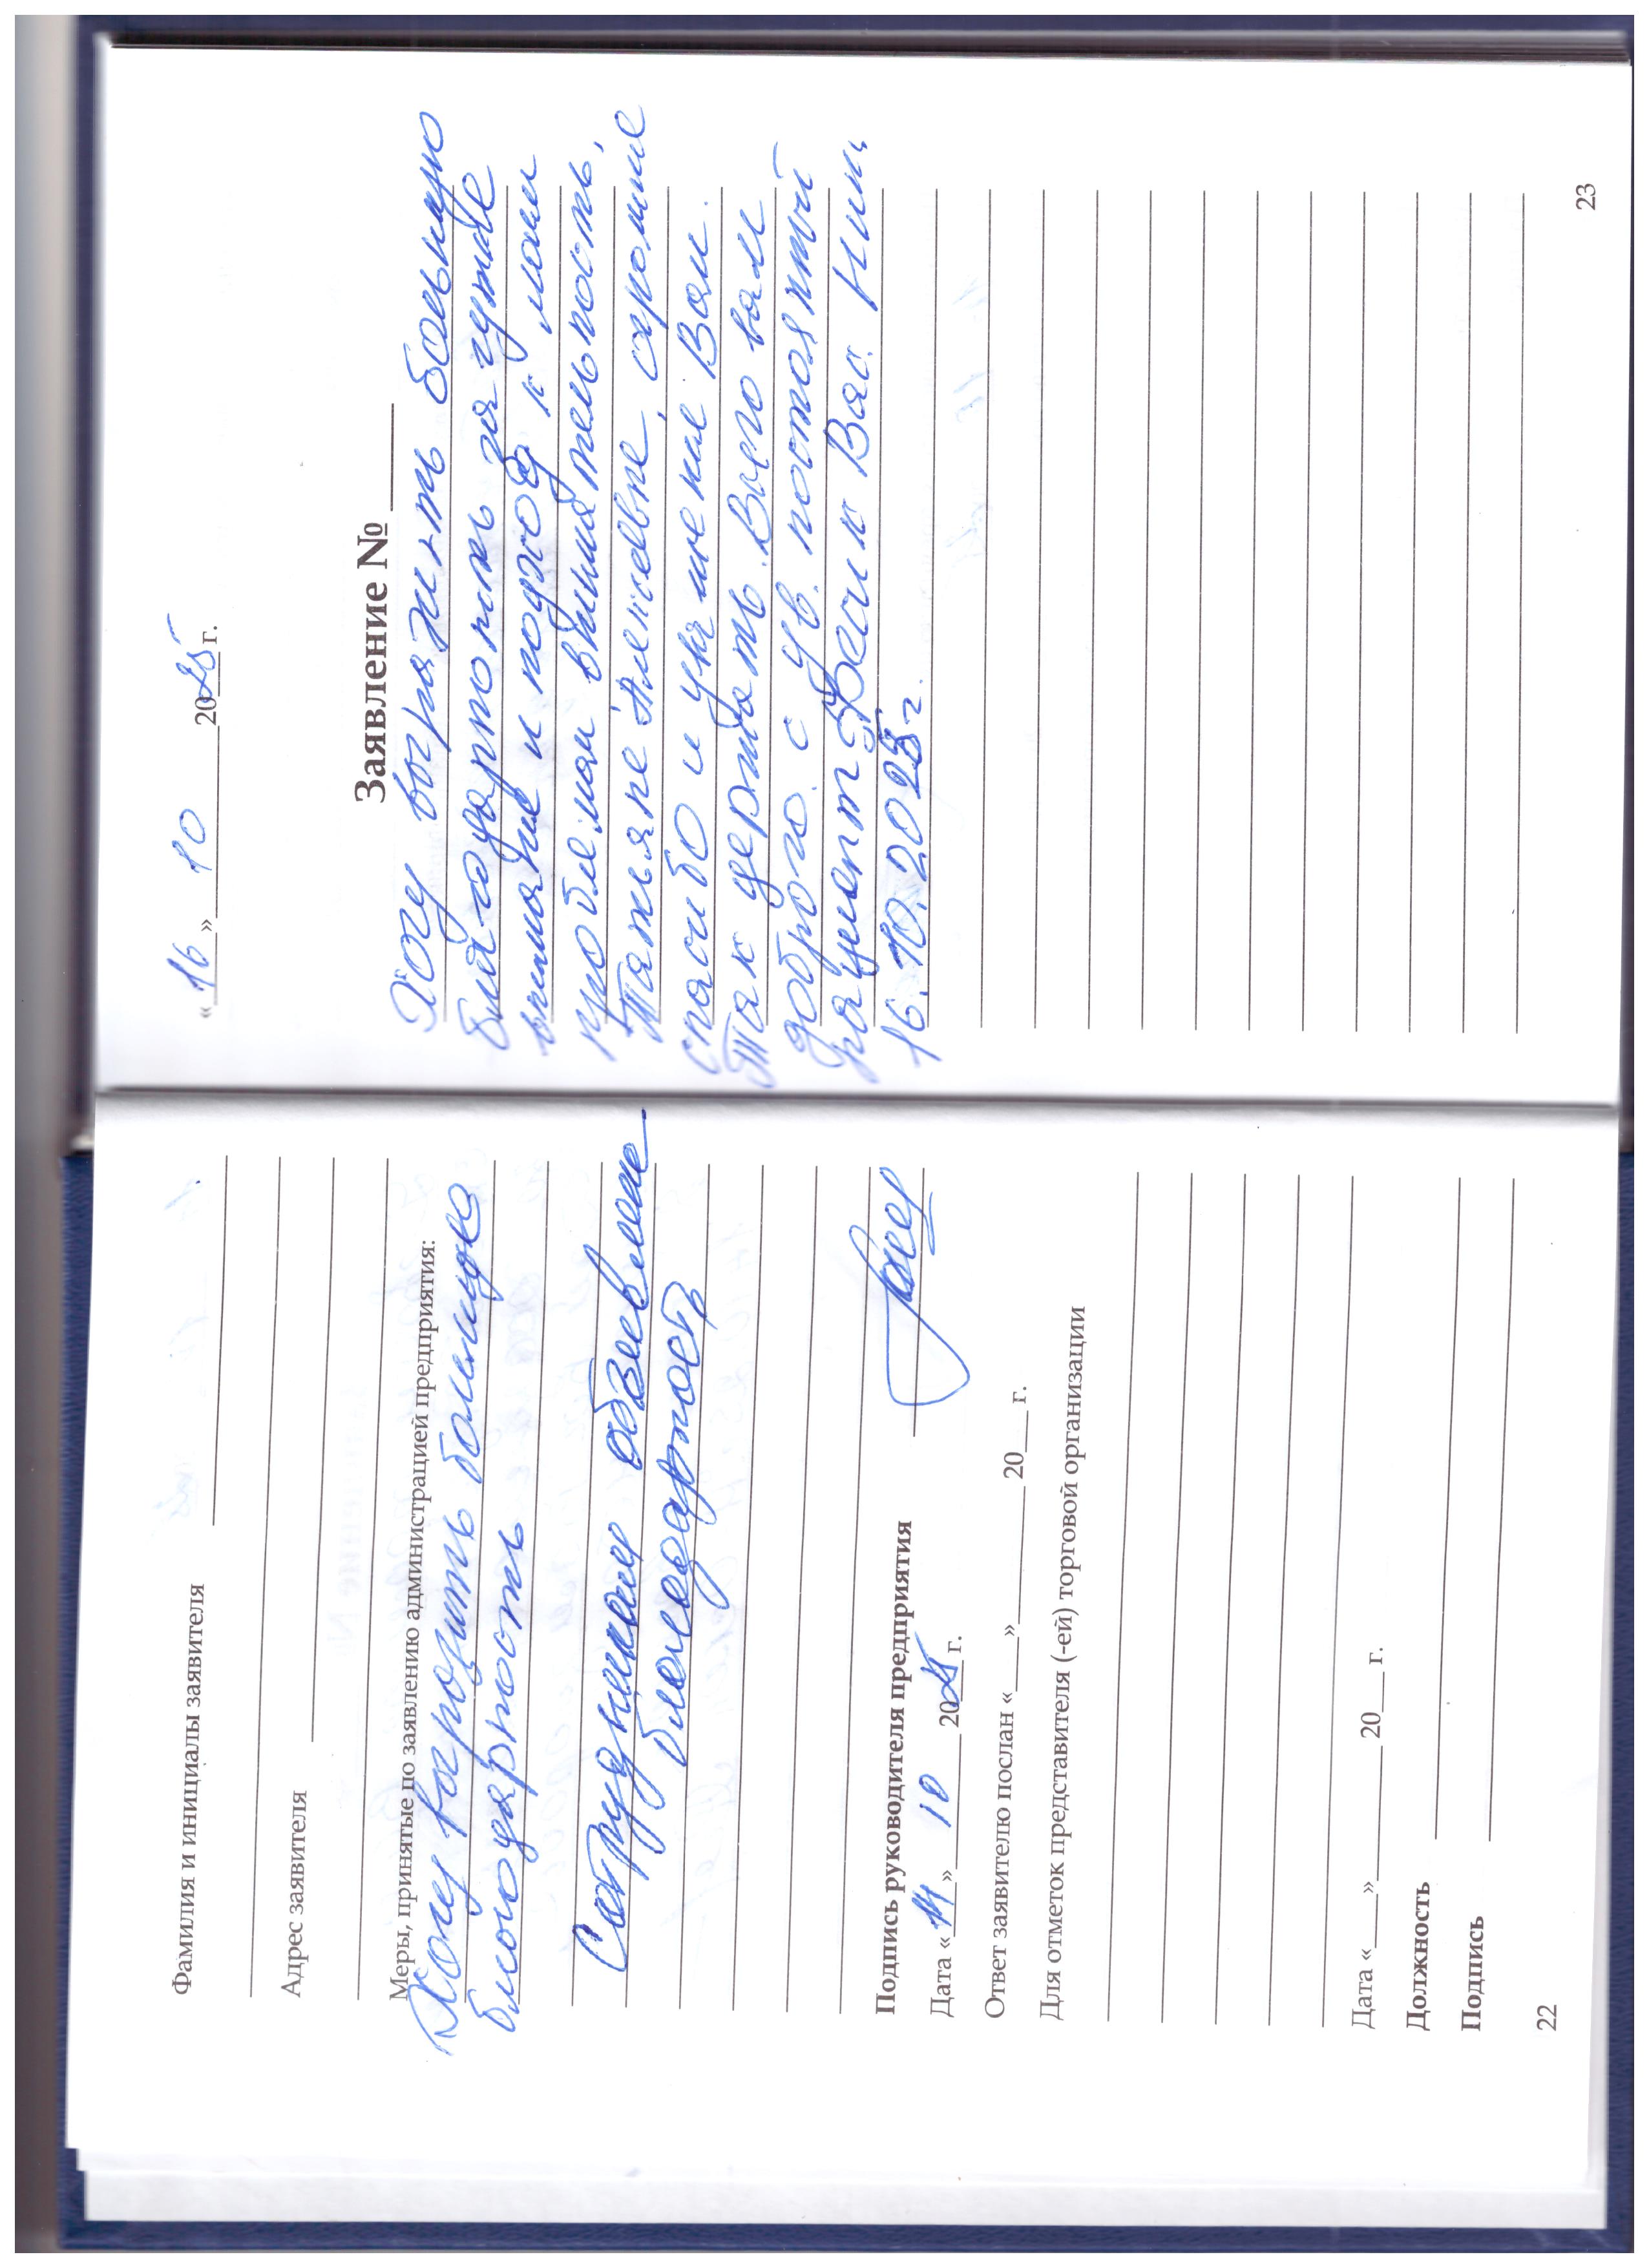 Фамилия и инициалы заявителя
Адрес заявителя
Меры, принятые по заявлению администрацией предприятия:
Хочу выразить большую
благодарность
Сотруднице объявлена
благодарность
Подпись руководителя предприятия
Дата « » 10 2025 г.
Ответ заявителю послан «___» ________ 20___ г.
Для отметок представителя (-ей) торговой организации
Дата «___» ________ 20___ г.
Должность
Подпись
22
«16» 10 2025 г.
Заявление № ____
Хочу выразить большую
благодарность за чуткое
внимание и подход к моим
проблемам внимательность,
Татьяне Алексевне, огромное
спасибо и уважение Вам.
Так держать. Всего вам
доброго. с ув. постоянный
пациент
16.10.2025г.
23